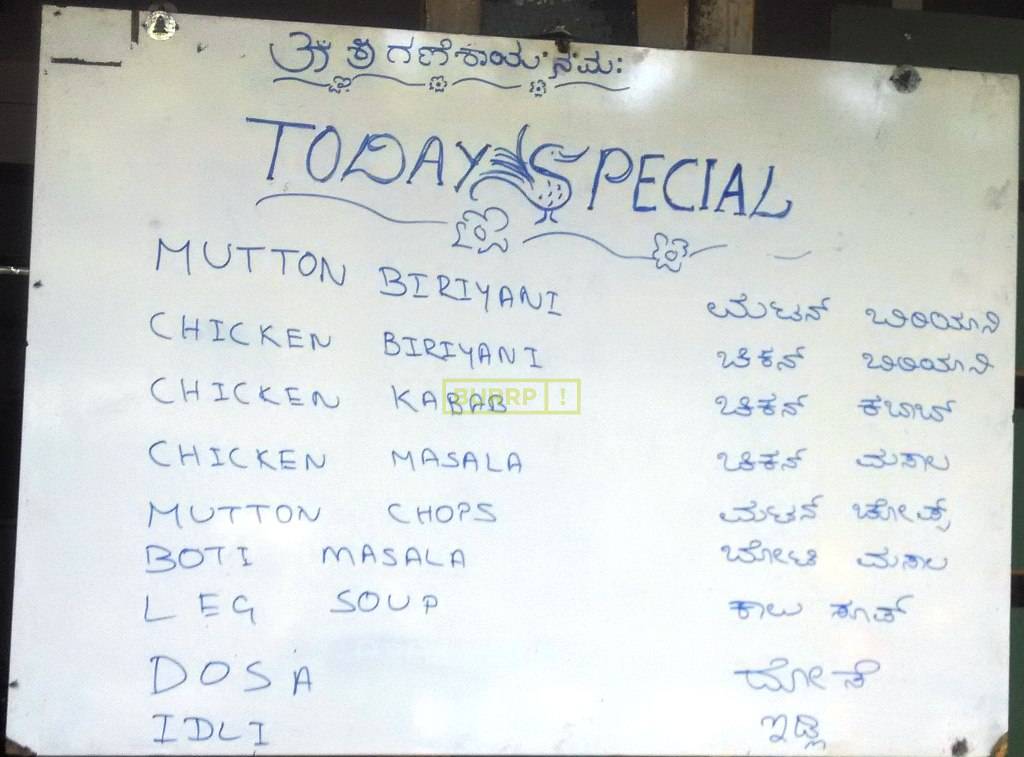 ಓಂ ಶ್ರೀ ಗಣೇಶಾಯ ನಮಃ
TODAY SPECIAL
MUTTON BIRIYANI ಮಟನ್ ಬಿರಿಯಾನಿ
CHICKEN BIRIYANI ಚಿಕನ್ ಬಿರಿಯಾನಿ
CHICKEN KABAB ಚಿಕನ್ ಕಬಾಬ್
BURRP!
CHICKEN MASALA ಚಿಕನ್ ಮಸಾಲ
MUTTON CHOPS ಮಟನ್ ಚೋಪ್ಸ್
BOTI MASALA ಬೋಟಿ ಮಸಾಲ
LEG SOUP ಕಾಲು ಸೂಪ್
DOSA ದೋಸೆ
IDLI ಇಡ್ಲಿ